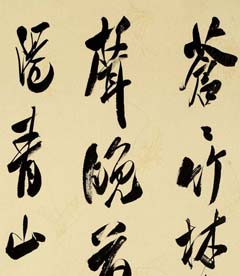 蒼〻竹林
聲晚
陽青山